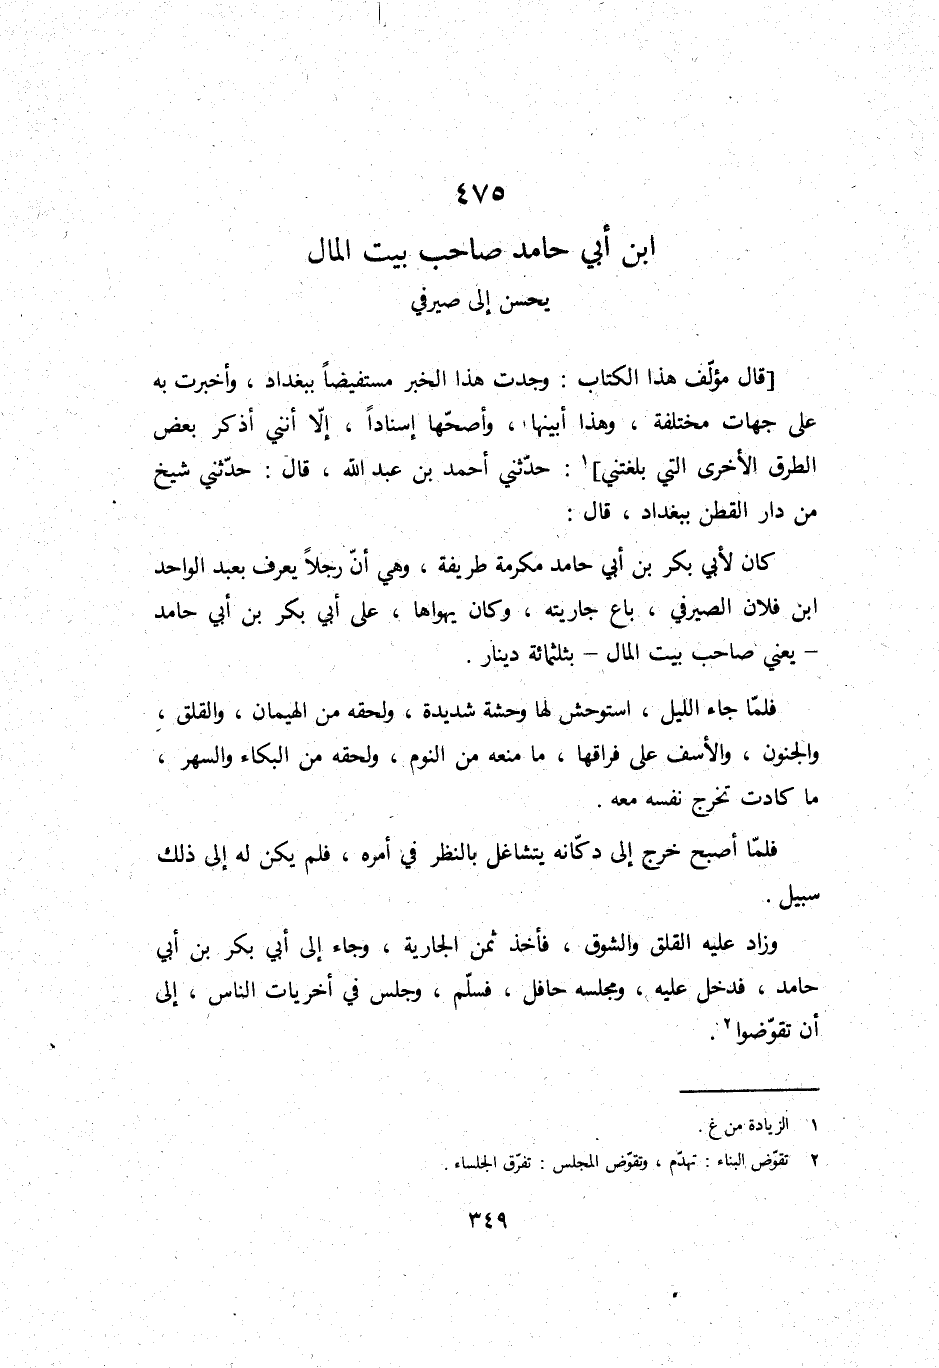 ٤٧٥
ابن أبي حامد صاحب بيت المال
يحسن إلى صيرفي
[قال مؤلّف هذا الكتاب : وجدت هذا الخبر مستفيضاً ببغداد ، وأخبرت به
على جهات مختلفة ، وهذا أبينها ، وأصحّها إسناداً ، إلّا أنني أذكر بعض
الطرق الأخرى التي بلغتني]١ : حدّثني أحمد بن عبد الله ، قال : حدّثني شيخ
من دار القطن ببغداد ، قال :
كان لأبي بكر بن أبي حامد مكرمة طريفة ، وهي أنّ رجلاً يعرف بعبد الواحد
ابن فلان الصيرفي ، باع جاريته ، وكان يهواها ، على أبي بكر بن أبي حامد
– يعني صاحب بيت المال – بثلثمائة دينار .
فلمّا جاء الليل ، استوحش لها وحشة شديدة ، ولحقه من الهيمان ، والقلق ،
والجنون ، والأسف على فراقها ، ما منعه من النوم ، ولحقه من البكاء والسهر ،
ما كادت تخرج نفسه معه .
فلمّا أصبح خرج إلى دكّانه يتشاغل بالنظر في أمره ، فلم يكن له إلى ذلك
سبيل .
وزاد عليه القلق والشوق ، فأخذ ثمن الجارية ، وجاء إلى أبي بكر بن أبي
حامد ، فدخل عليه ، ومجلسه حافل ، فسلّم ، وجلس في أخريات الناس ، إلى
أن تقوّضوا٢ .
١ الزيادة من غ .
٢ تقوّض البناء : تهدّم ، وتقوّض المجلس : تفرّق الجلساء .
٣٤٩